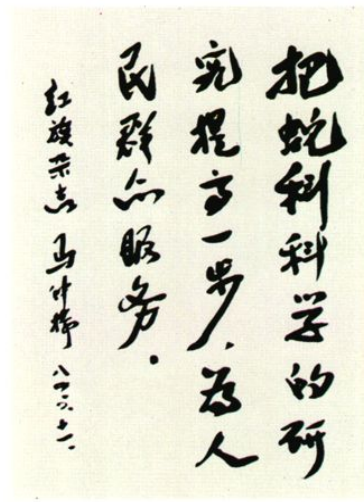 把蛇科科学的研
究提高一步、为人
民群众服务。
红旗杂志 马仲扬 八六、六、十一、